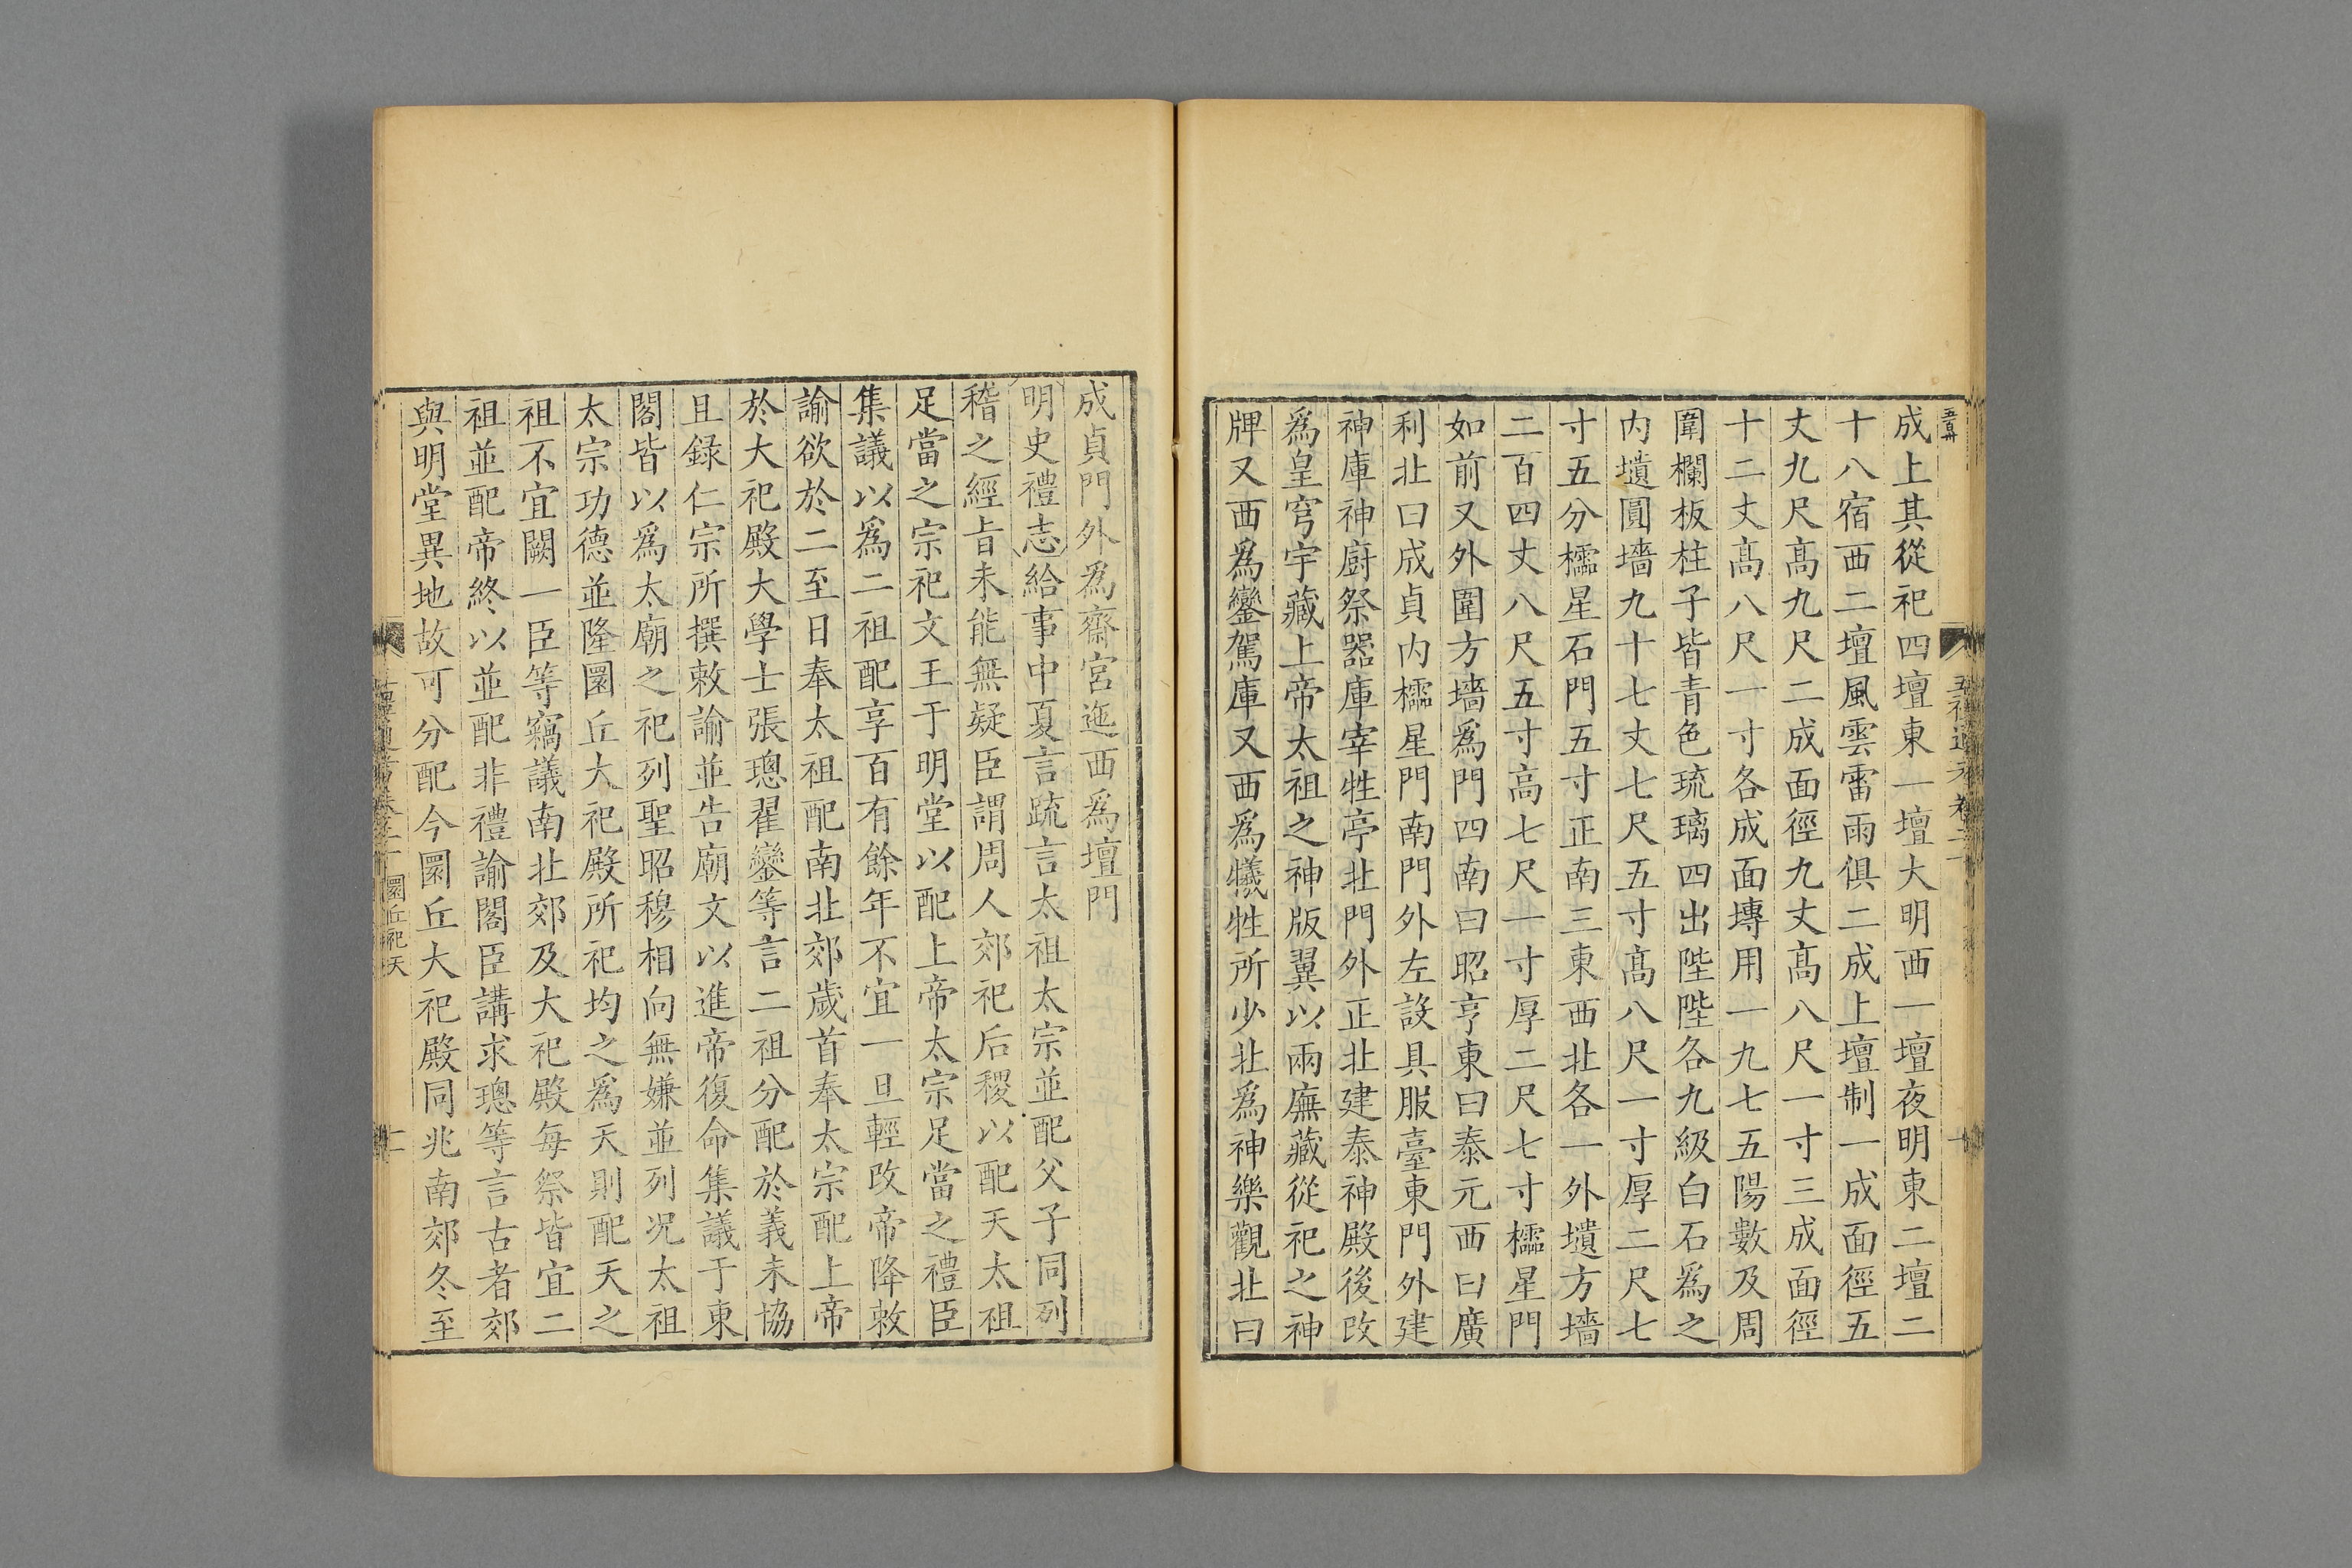 五禮通考卷二十
十
成上其從祀四壇東一壇大明西一壇夜明東二壇二
十八宿西二壇風雲雷雨俱二成上壇制一成面徑五
丈九尺髙九尺二成面徑九丈髙八尺一寸三成面徑
十二丈髙八尺一寸各成面塼用一九七五陽數及周
圍欄板柱子皆青色琉璃四出陛陛各九級白石爲之
内壝圓墻九十七丈七尺五寸髙八尺一寸厚二尺七
寸五分櫺星石門五寸正南三東西北各一外壝方墻
二百四丈八尺五寸高七尺一寸厚二尺七寸櫺星門
如前又外圍方墻爲門四南曰昭亨東曰泰元西曰廣
利北曰成貞内櫺星門南門外左設具服臺東門外建
神庫神廚祭器庫宰牲亭北門外正北建泰神殿後改
爲皇穹宇藏上帝太祖之神版翼以兩廡藏從祀之神
牌又西爲鑾駕庫又西爲犧牲所少北爲神樂觀北曰
成貞門外爲齋宮迤西爲壇門
明史禮志給事中夏言疏言太祖太宗並配父子同列
稽之經旨未能無疑臣謂周人郊祀后稷以配天太祖
足當之宗祀文王于明堂以配上帝太宗足當之禮臣
集議以爲二祖配享百有餘年不宜一旦輕改帝降敕
諭欲於二至日奉太祖配南北郊歲首奉太宗配上帝
於大祀殿大學士張璁翟鑾等言二祖分配於義未協
且録仁宗所撰敕諭並告廟文以進帝復命集議于東
閣皆以爲太廟之祀列聖昭穆相向無嫌並列况太祖
太宗功德並隆圜丘大祀殿所祀均之爲天則配天之
祖不宜闕一臣等竊議南北郊及大祀殿每祭皆宜二
祖並配帝終以並配非禮諭閣臣講求璁等言古者郊
與明堂異地故可分配今圜丘大祀殿同兆南郊冬至
圜丘祀天